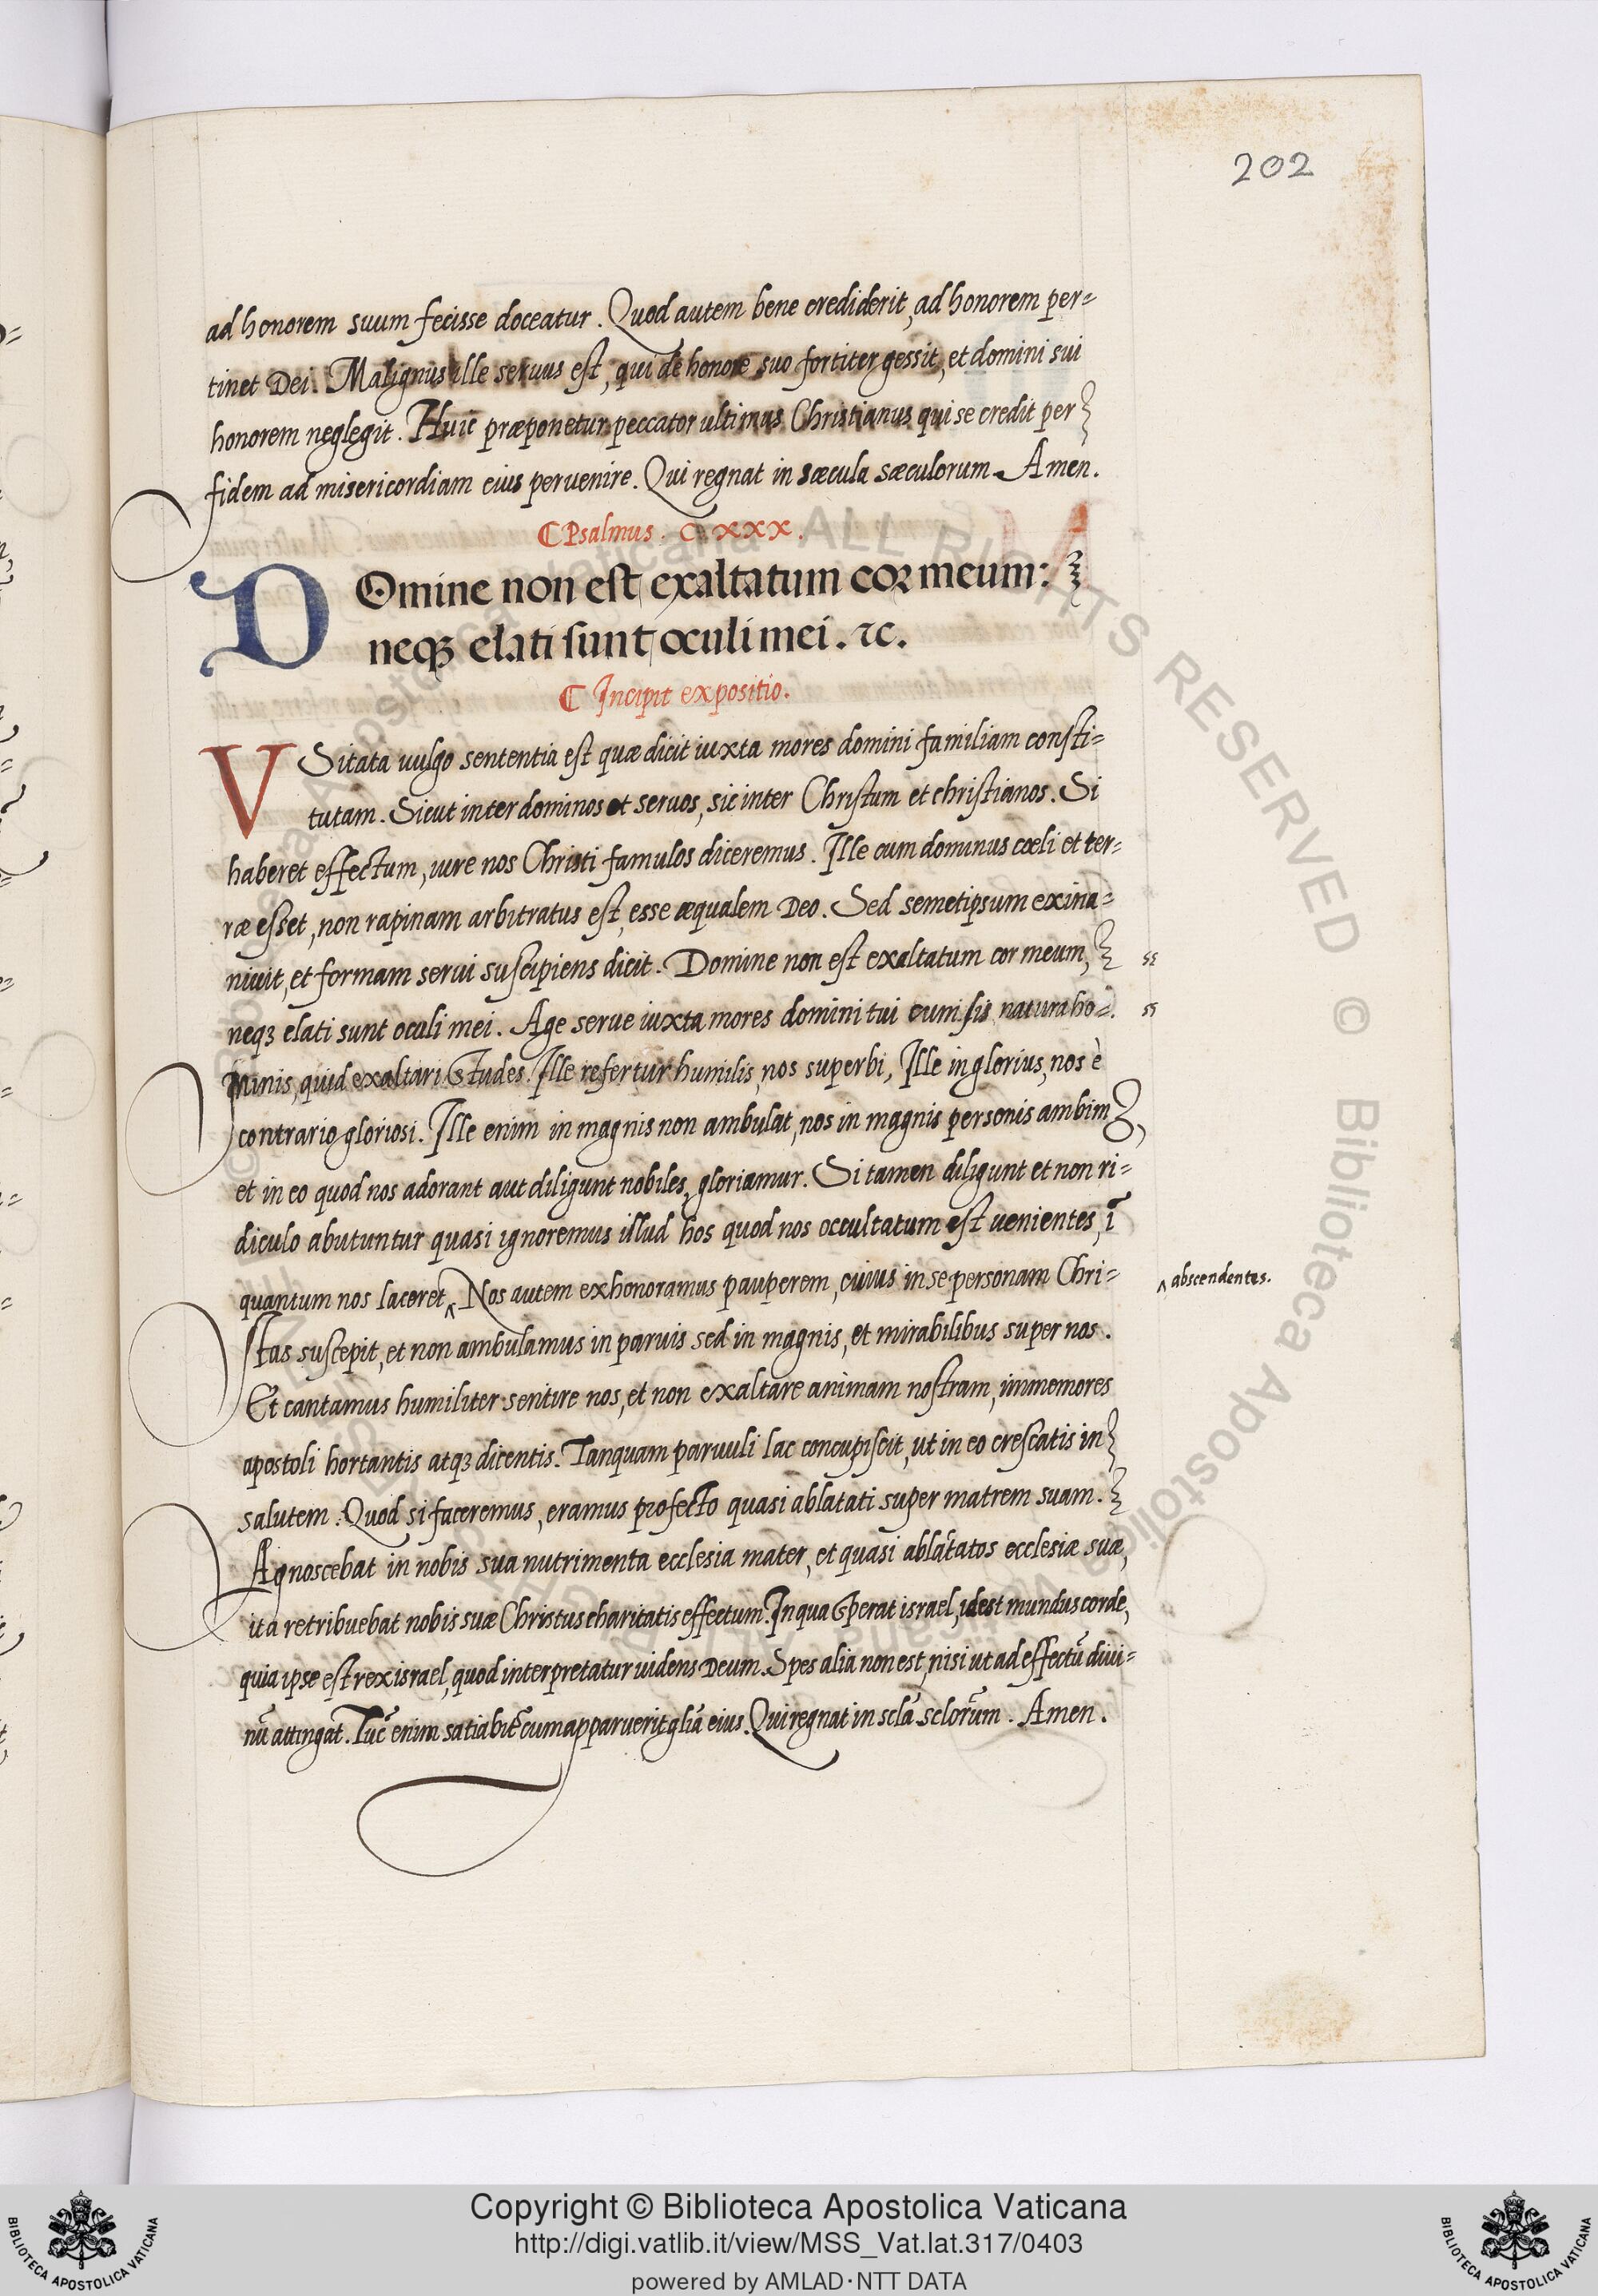 202
ad honorem suum fecisse doceatur. Quod autem bene crediderit, ad honorem per=
tinet Dei. Malignus ille seruus est, qui de honore suo fortiter gessit, et domini sui
honorem neglegit. Huic præponetur peccator ultimus Christianus qui se credit per
fidem ad misericordiam eius peruenire. Qui regnat in sæcula sæculorum. Amen.
Psalmus. CXXX.
DOmine non est exaltatum cor meum:
neqꝫ elati sunt oculi mei. ⁊c.
Incipit expositio.
VSitata uulgo sententia est quæ dicit iuxta mores domini familiam consti=
tutam. Sicut inter dominos et seruos, sic inter Christum et christianos. Si
haberet effectum, iure nos Christi famulos diceremus. Ille cum dominus cœli et ter=
ræ esset, non rapinam arbitratus est, esse æqualem Deo. Sed semetipsum exina=
niuit, et formam serui suscipiens dicit. Domine non est exaltatum cor meum, ss
neqꝫ elati sunt oculi mei. Age serue iuxta mores domini tui cum sis natura ho=. ss
minis, quid exaltari studes. Ille refertur humilis, nos superbi, Ille inglorius, nos è
contrario gloriosi. Ille enim in magnis non ambulat, nos in magnis personis ambim
et in eo quod nos adorant aut diligunt nobiles, gloriamur. Si tamen diligunt et non ri=
diculo abutuntur quasi ignoremus illud hos quod nos occultatum est uenientes, ī
quantum nos laceret ‸ Nos autem exhonoramus pauperem, cuius in se personam Chri= ‸ abscendentes.
stas suscepit, et non ambulamus in paruis sed in magnis, et mirabilibus super nos.
Et cantamus humiliter sentire nos, et non exaltare animam nostram, immemores
apostoli hortantis atqꝫ dicentis. Tanquam paruuli lac concupiscit, ut in eo crescatis in
salutem. Quod si faceremus, eramus profecto quasi ablatati super matrem suam.
Agnoscebat in nobis sua nutrimenta ecclesia mater, et quasi ablatatos ecclesiæ suæ,
ita retribuebat nobis suæ Christus charitatis effectum. In qua sperat israel, idest mundus corde,
quia ipse est rex israel, quod interpretatur uidens Deum. Spes alia non est, nisi ut ad effectū diui=
nū attingat. Tūc enim satiabit̃ cum apparuerit gl̃ia eius. Qui regnat in scl̃a sclor̃um. Amen.
© Biblioteca Apostolica Vaticana ALL RIGHTS RESERVED
Copyright © Biblioteca Apostolica Vaticana
http://digi.vatlib.it/view/MSS_Vat.lat.317/0403
powered by AMLAD·NTT DATA
BIBLIOTECA APOSTOLICA VATICANA
BIBLIOTECA APOSTOLICA VATICANA